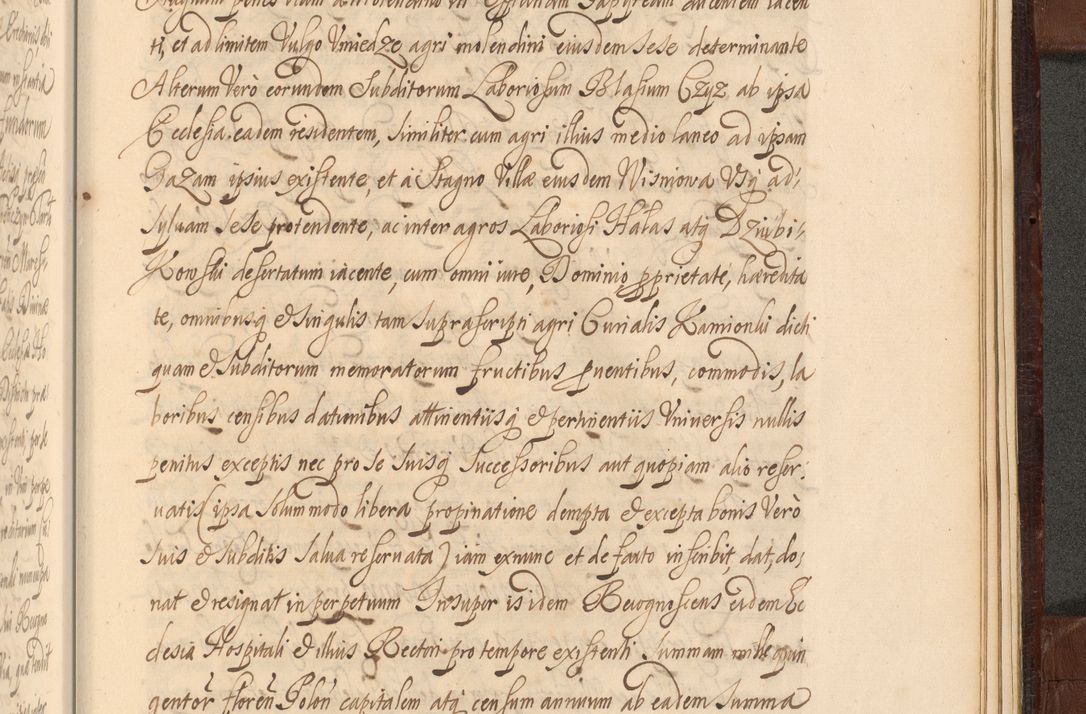 ti, et ad limitem Vulgo Vniedze agri molendini eiusdem sese determinante
Alterum Verò eorundem Subditorum Laboriosum Blasium Czyz ab ipsa
Ecclesia eadem residentem, similiter cum agri illius medio laneo ad ipsam
Gazam ipsius existente, et à Stagno Villæ eiusdem Wisniowa Vsq ad
Syluam sese protendente, ac inter agros Laboriosi Halas atq Dziubi
Kowski desertatum iacente, cum omni iure, Dominio pprietate, hæredita
te, omnibusq & Singulis tam suprascripti agri Curialis Kamionki dicti
quam & Subditorum memoratorum fructibus puentibus, commodis, la
boribus censibus dationibus attinentiisq & pertinentiis Vniuersis nullis
penitus exceptis nec pro se suisq Successoribus aut quopiam alio reser
uatis (ipsa solummodo libera propinatione dempta & excepta bonis Verò
suis & subditis salua reseruata) iam exnunc et de facto inscribit, dat, do
nat & resignat in perpetuum Insuper isidem Recognoscens eidem Ec
clesiæ Hospitali & illius Rectori pro tempore existenti Summam mille quin
gentor floren Polon capitalem atq censum annuum ab eadem summa